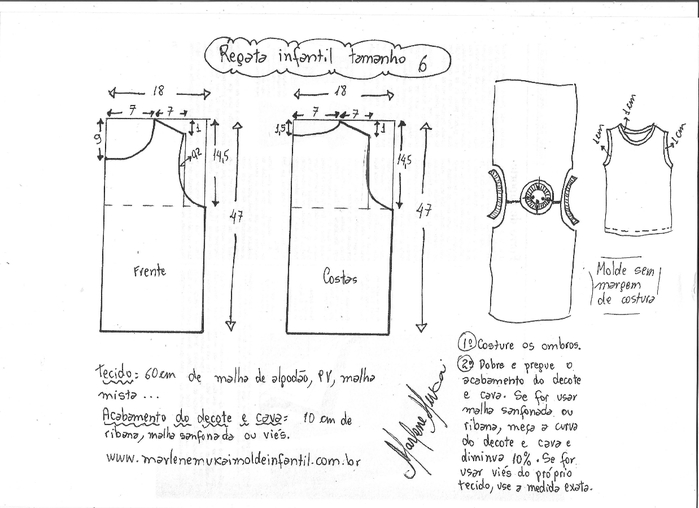 Regata infantil tamanho 6
18
7 7
1
9
0,2
14,5
47
Frente
18
7 7
1,5
1
14,5
47
Costas
1cm
1cm
1cm
Molde sem
margem
de costura
Tecido: 60cm de malha de algodão, PV, malha
mista ...
Acabamento do decote e cava: 10 cm de
ribana, malha sanfonada ou viés.
www.marlenemukaimoldeinfantil.com.br
Marlene Mukai
1º Costure os ombros.
2º Dobre e pregue o
acabamento do decote
e cava. Se for usar
malha sanfonada ou
ribana, meça a curva
do decote e cava e
diminua 10%. Se for
usar viés do próprio
tecido, use a medida exata.